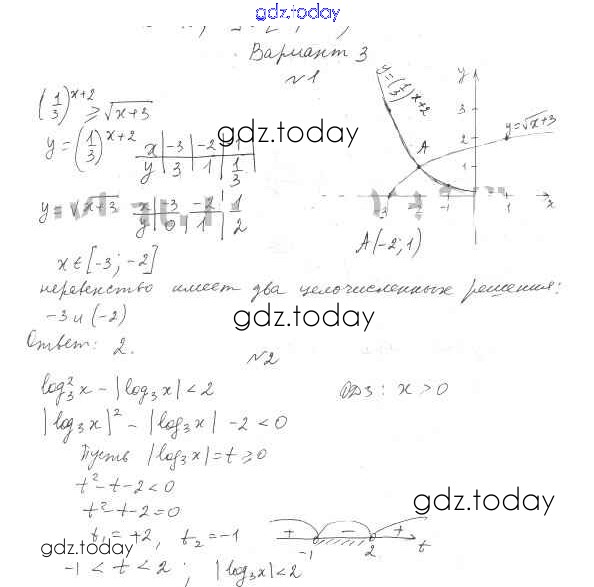 gdz.today
Вариант 3
№1
(1/3)^(x+2) ≥ √(x+3)
y=(1/3)^(x+2)
x | -3 | -2 | -1
y | 3 | 1 | 1/3
gdz.today
y=√(x+3)
x | -3 | -2 | 1
y | 0 | 1 | 2
y=(1/3)^(x+2)
y
3
2
1
A
y=√(x+3)
-3 -2 -1 1 x
A(-2;1)
x ∈ [-3; -2]
неравенство имеет два целочисленных решения:
-3 и (-2)
gdz.today
Ответ: 2.
№2
log₃²x - |log₃x| < 2
ОДЗ: x > 0
|log₃x|² - |log₃x| - 2 < 0
Пусть |log₃x| = t ≥ 0
t² - t - 2 < 0
t² - t - 2 = 0
gdz.today
t₁ = +2, t₂ = -1
+ - +
-1 2 t
gdz.today
-1 < t < 2; |log₃x| < 2